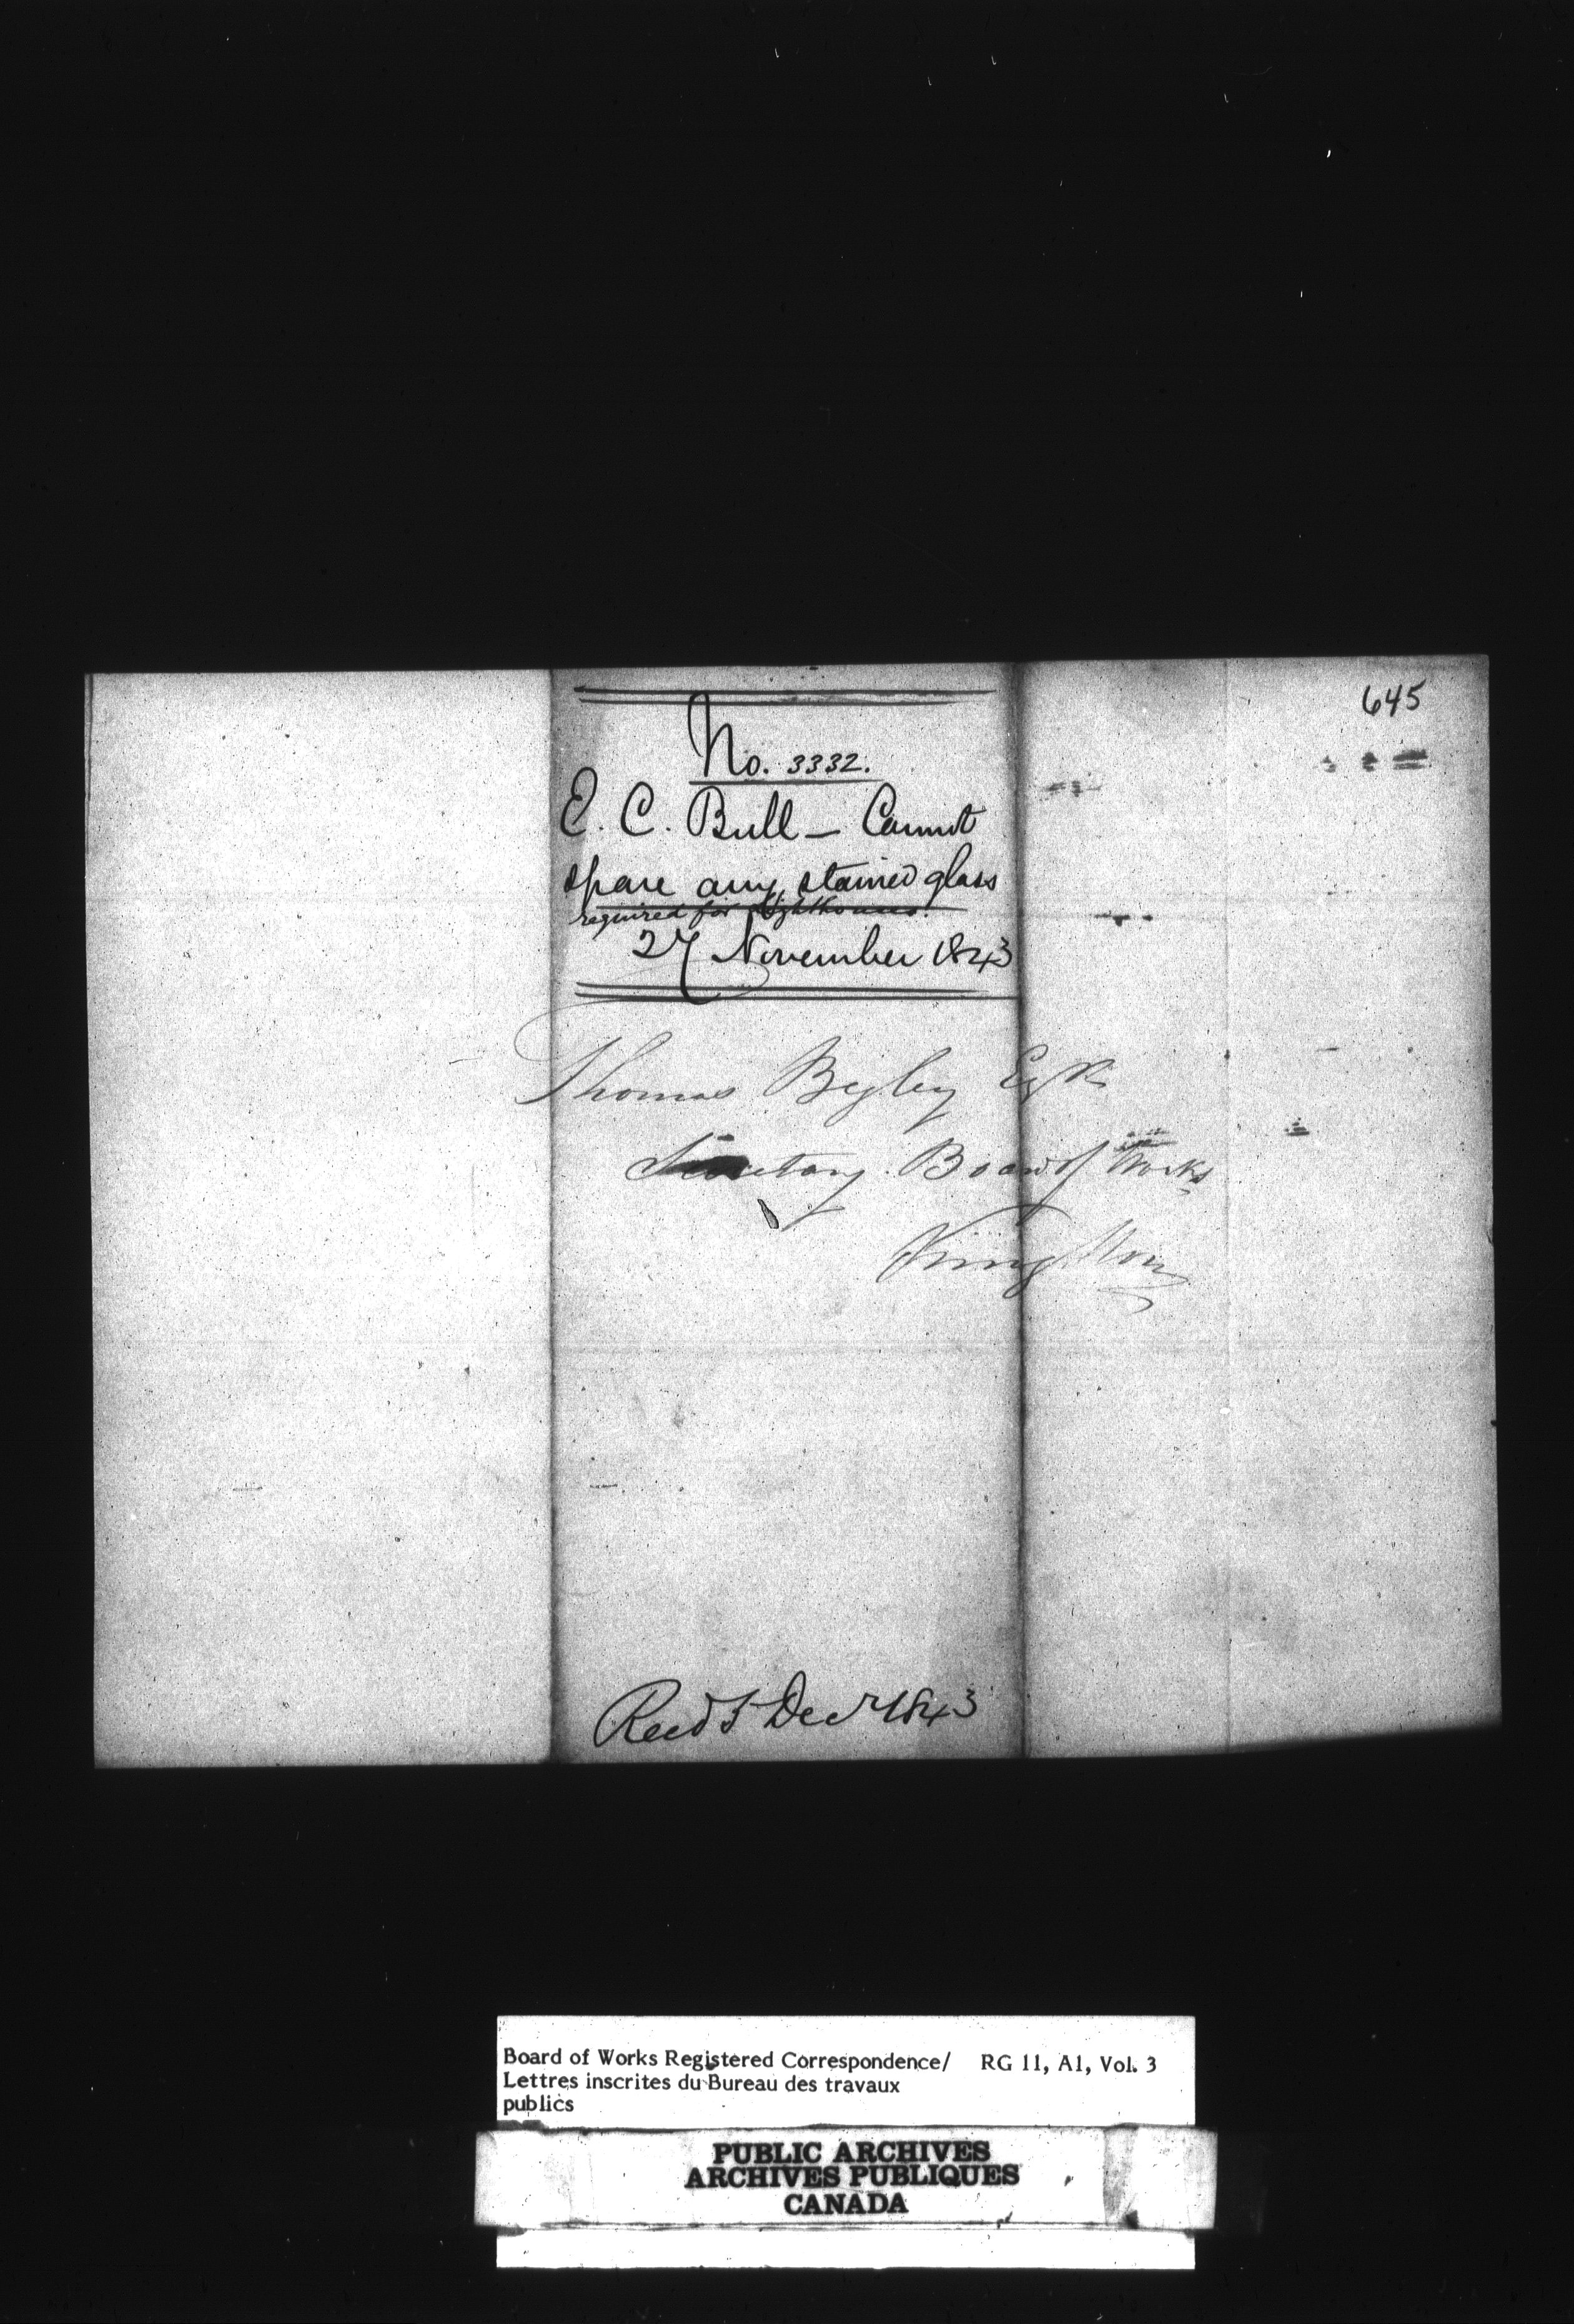 645
No. 3332.
E. C. Bull — Cannot
spare any stained glass
required for Lighthouses.
27 November 1843
Thomas Begley Esqr
Secretary Board of Works
Kingston
Recd 5 Decr 1843
Board of Works Registered Correspondence/ RG 11, A1, Vol. 3
Lettres inscrites du Bureau des travaux
publics
PUBLIC ARCHIVES
ARCHIVES PUBLIQUES
CANADA